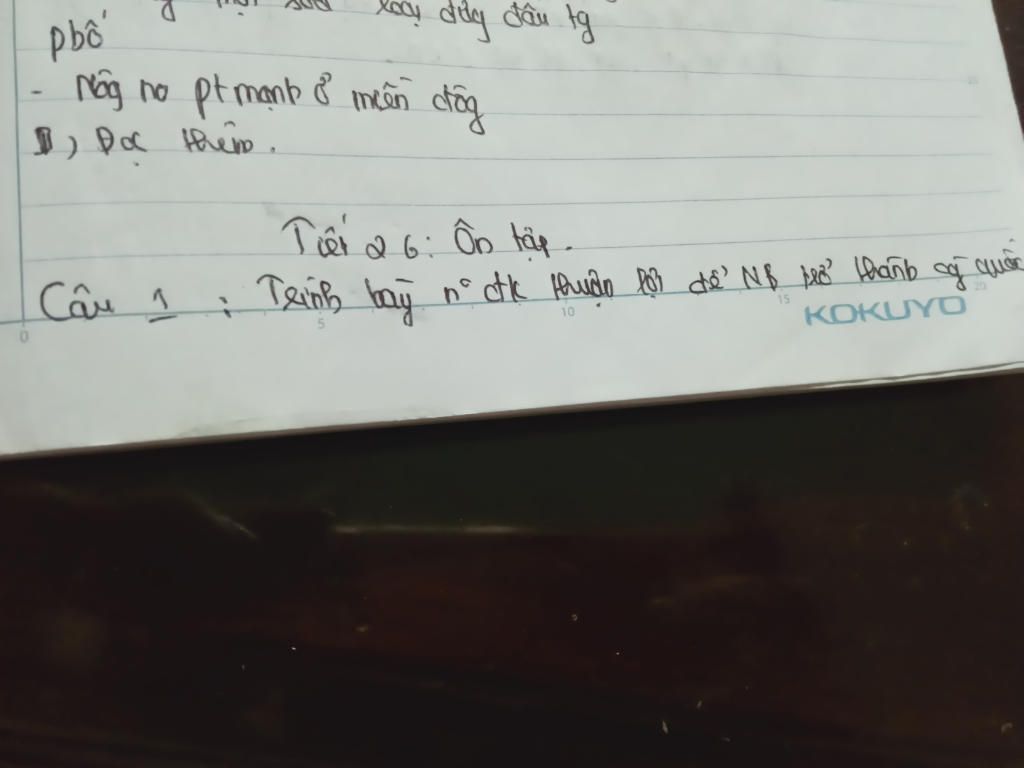 xoay dây đâu tg
phố
- Nôg no pt mạnh ở miền đôg
II, Đọc thêm.
Tiết 26: Ôn tập.
Câu 1 : Trình bày nº đk thuận lợi để NB trở thành cg quốc
0 5 10 15 20
KOKUYO